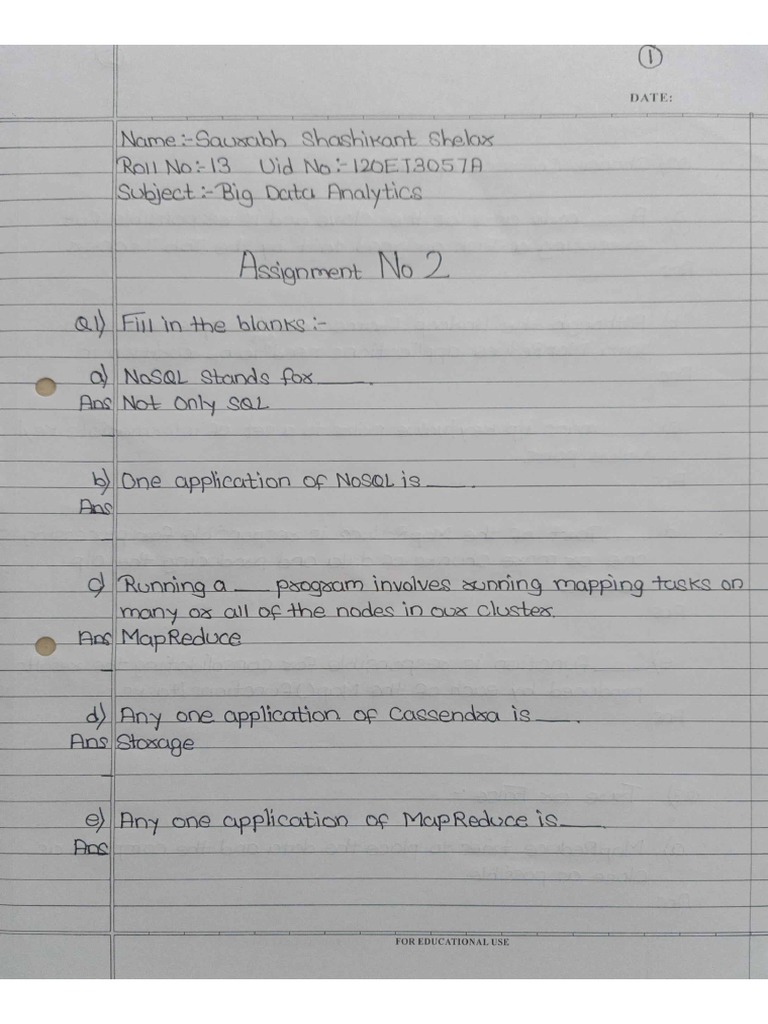 1
DATE:
Name:- Saurabh Shashikant Shelar
Roll No:- 13 Uid No:- 120ET3057A
Subject:- Big Data Analytics
Assignment No 2
Q1) Fill in the blanks:-
a) NoSQL Stands for ____.
Ans Not Only SQL
b) One application of NoSQL is ____.
Ans
c) Running a ___ program involves running mapping tasks on
many or all of the nodes in our cluster.
Ans MapReduce
d) Any one application of Cassendra is ___.
Ans Storage
e) Any one application of MapReduce is ____.
Ans
FOR EDUCATIONAL USE